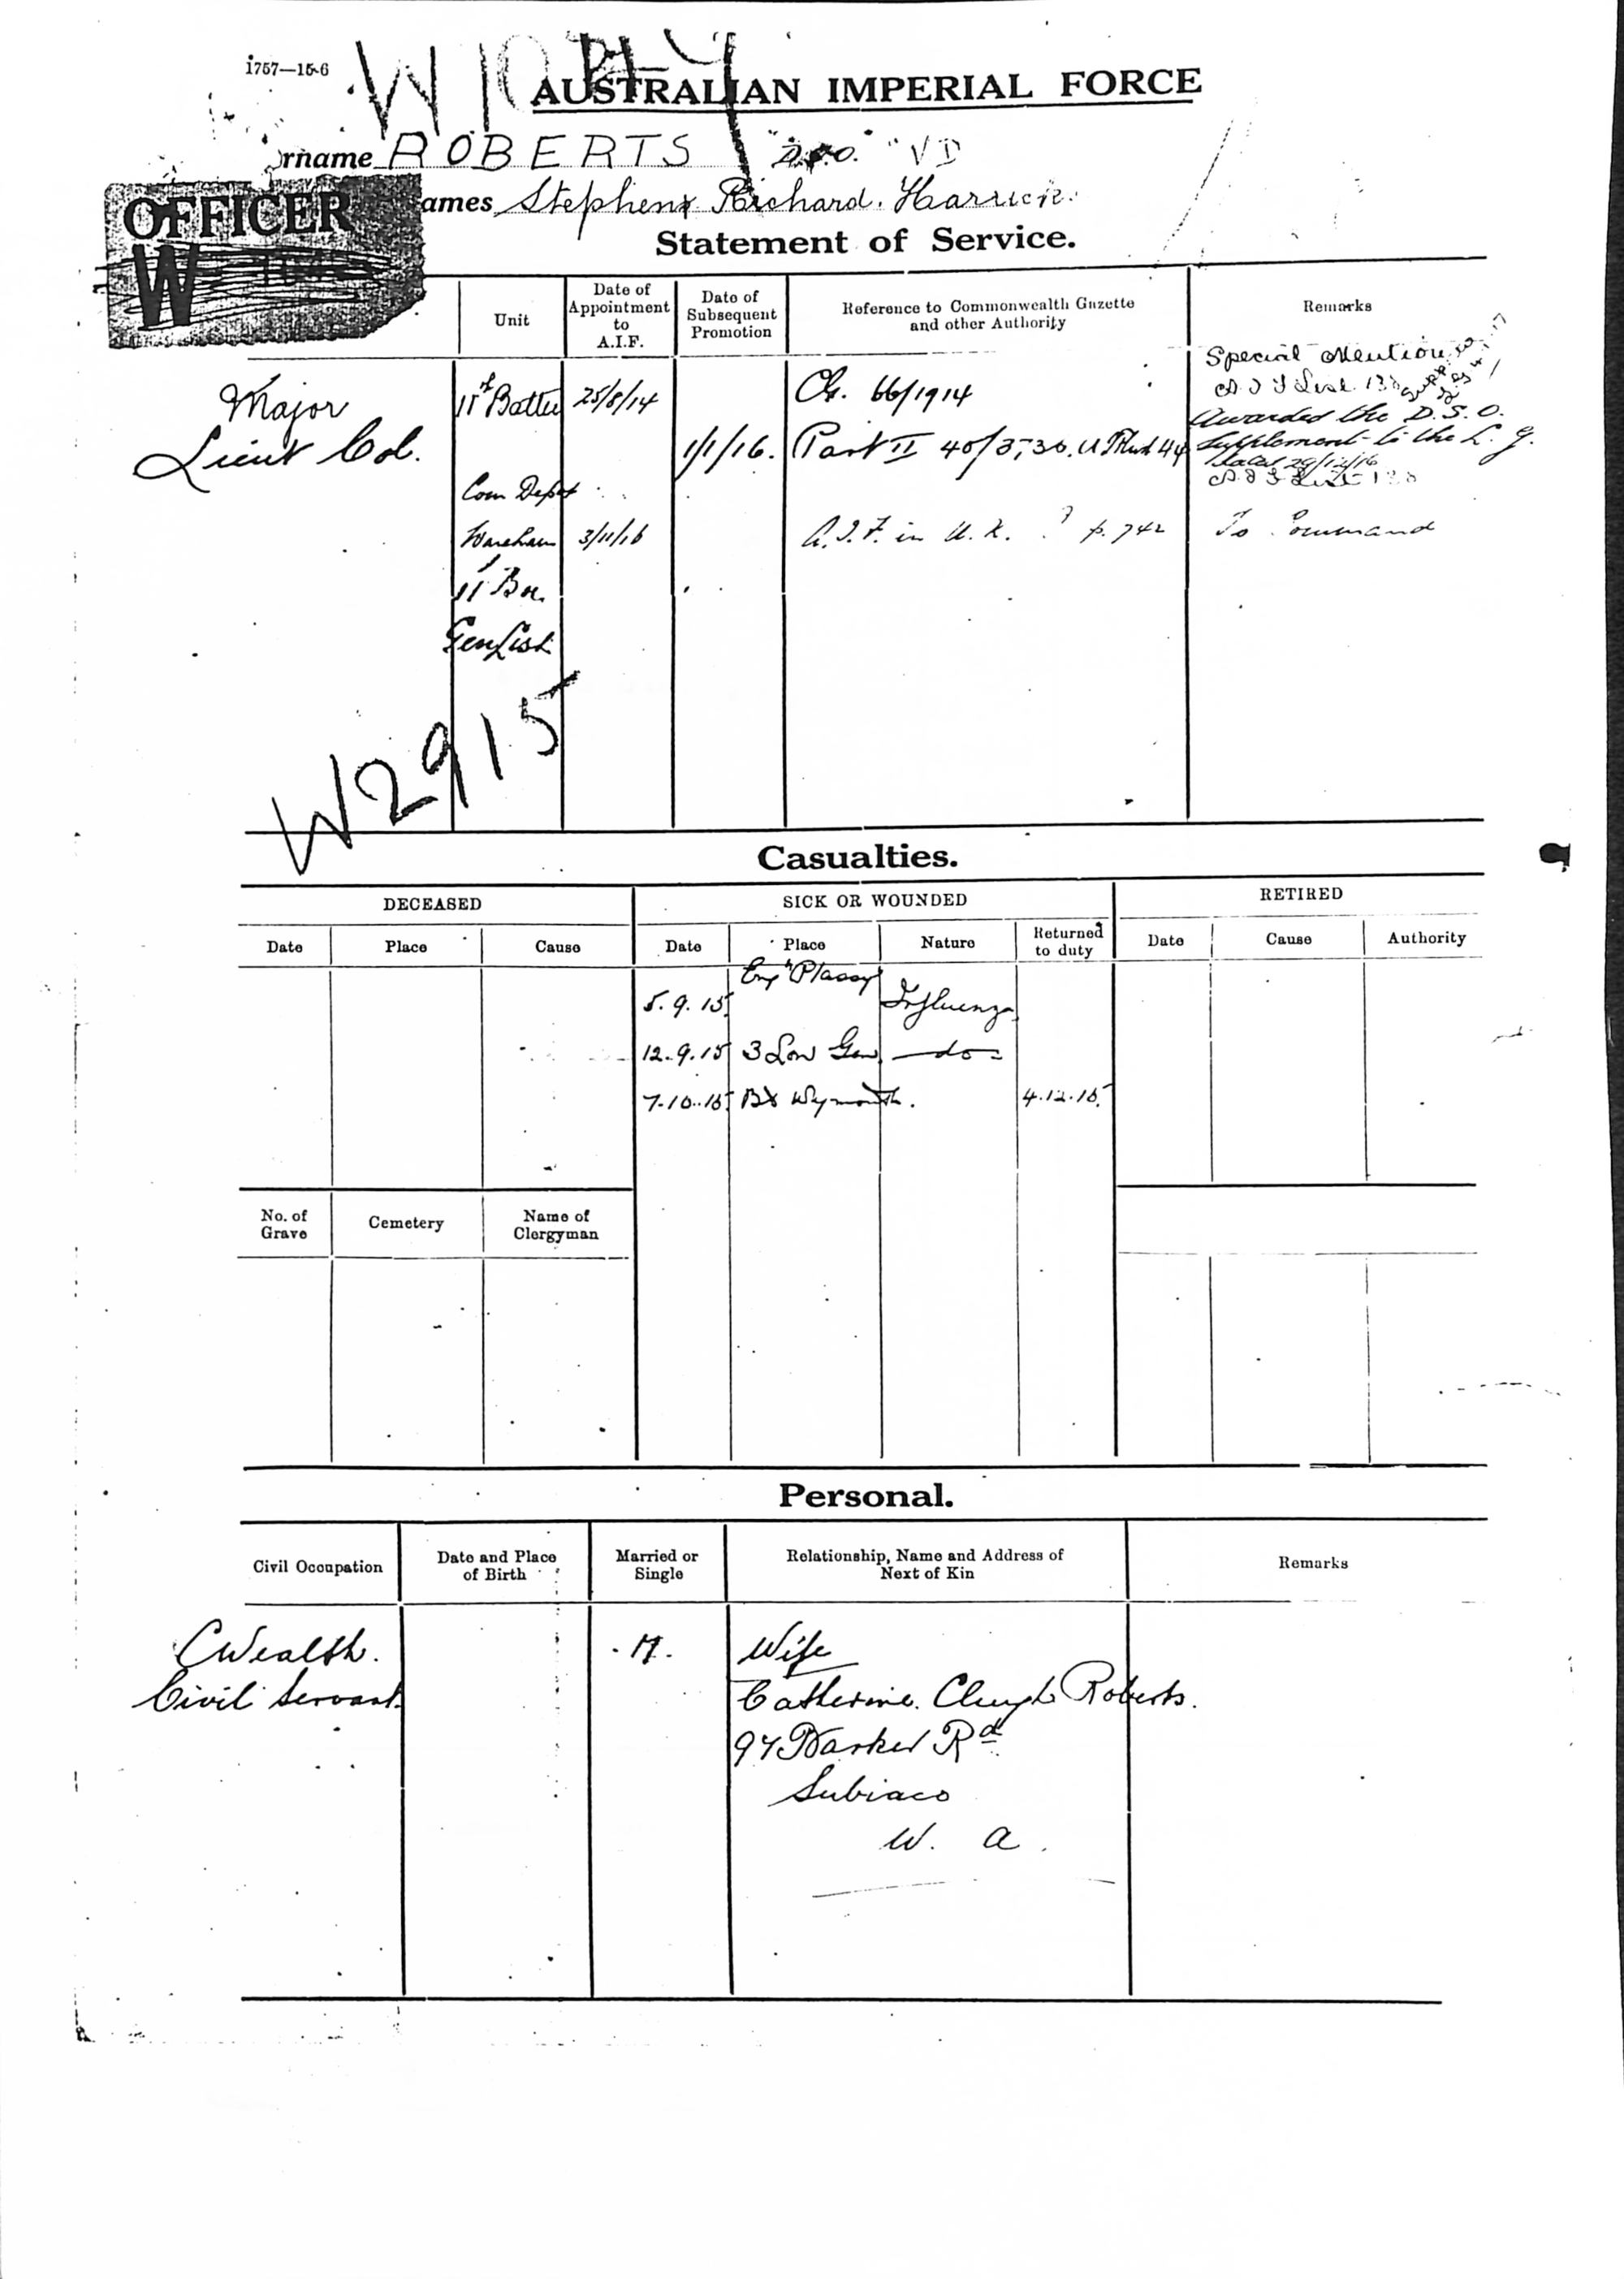 1757—15-6
AUSTRALIAN IMPERIAL FORCE
rname ROBERTS D.S.O. "VD
OFFICER
W
ames Stephen Richard. Harrick.
Statement of Service.
Unit
Date of Appointment to A.I.F.
Date of Subsequent Promotion
Reference to Commonwealth Gazette and other Authority
Remarks
Special Mention
Major 11th Batln 25/8/14 66/1914
Awarded the D.S.O.
Lieut Col. 1/1/16. Part II 40/3,30.
Supplement to the L. G.
dated 29/12/16
Com Depot
Wareham 3/11/16 A.I.F. in U.K. ? p. 742 To Command
11 Bn.
Gen List
W2915
Casualties.
DECEASED
SICK OR WOUNDED
RETIRED
Date Place Cause Date Place Nature Returned to duty Date Cause Authority
Plassy
5.9.15 Influenza
12.9.15 3 Lon Gen —do—
7.10.15 Weymouth. 4.12.15.
No. of Grave Cemetery Name of Clergyman
Personal.
Civil Occupation
Date and Place of Birth
Married or Single
Relationship, Name and Address of Next of Kin
Remarks
CWealth. M. Wife
Civil Servant. Catherine. Clugh Roberts.
97 Barker Rd
Subiaco
W. A.